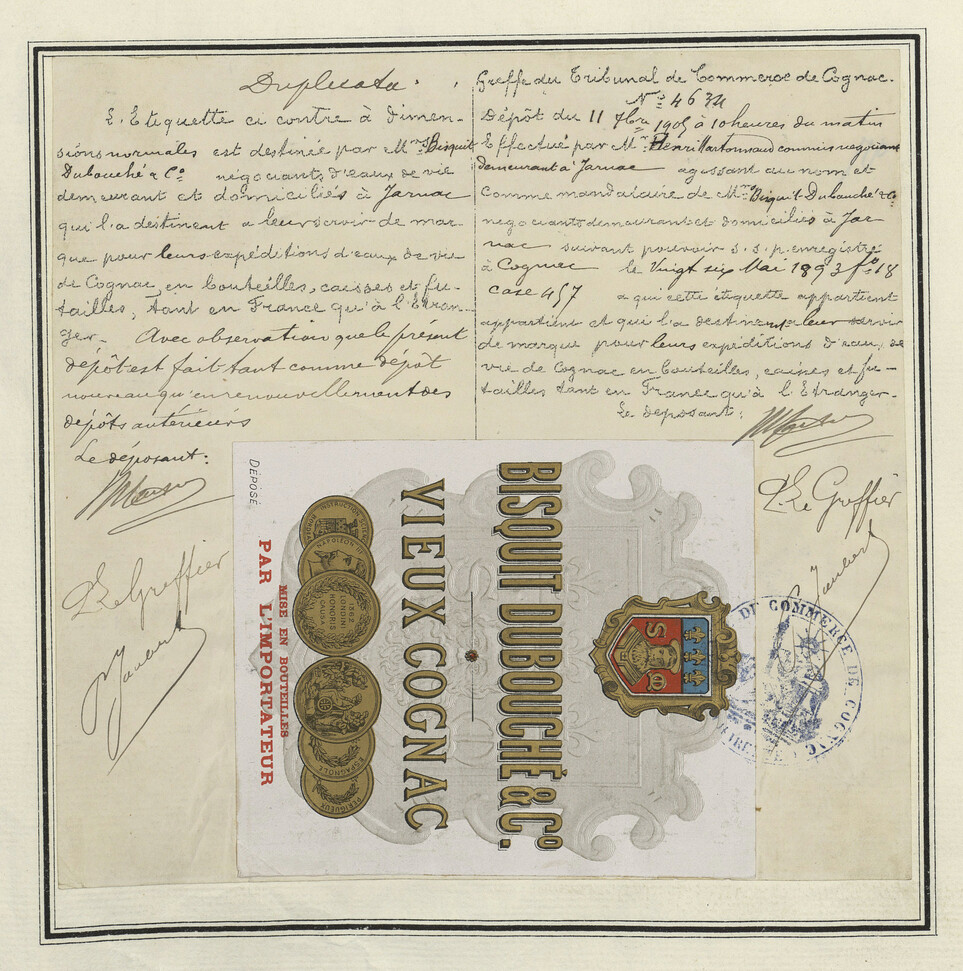 Duplicata.
L'Etiquette ci contre à dimen-
sions normales est destinée par Mrs Bisquit
Dubouché & Co negociants d'eaux de vie
demeurant et domiciliés à Jarnac
qui l'a destinent a leur servir de mar-
que pour leurs expéditions d'eaux de vie
de Cognac, en bouteilles, caisses et fu-
tailles, tant en France qu'à l'Etran-
ger. Avec observation que le présent
dépôt est fait tant comme dépôt
nouveau qu'en renouvellement des
dépôts antérieurs
Le déposant:
P. Le Greffier
Greffe du Tribunal de Commerce de Cognac.
No 4634
Dépôt du 11 7bre 1905 à 10 heures du matin
Effectué par Mr Henri commis negociant
demeurant à Jarnac agissant au nom et
comme mandataire de Mrs Bisquit Dubouché & Co
negociants demeurant et domiciliés à Jar-
nac suivant pouvoir s.s.p. enregistré
à Cognac le Vingt six Mai 1893 fo 18
case 457 a qui cette étiquette appartient
appartient et qui l'a destinent a leur servir
de marque pour leurs expéditions d'eaux de
vie de Cognac en bouteilles, caisses et fu-
tailles tant en France qu'à l'Etranger.
Le deposant:
P. Le Greffier
DÉPOSÉ
BISQUIT DUBOUCHÉ & Co.
VIEUX COGNAC
MISE EN BOUTEILLES
PAR L'IMPORTATEUR
NAPOLEON III
1862
LONDINI
HONORIS
CAUSA
ESPAGNOLE
PERIGUEUX
DU COMMERCE DE COGNAC